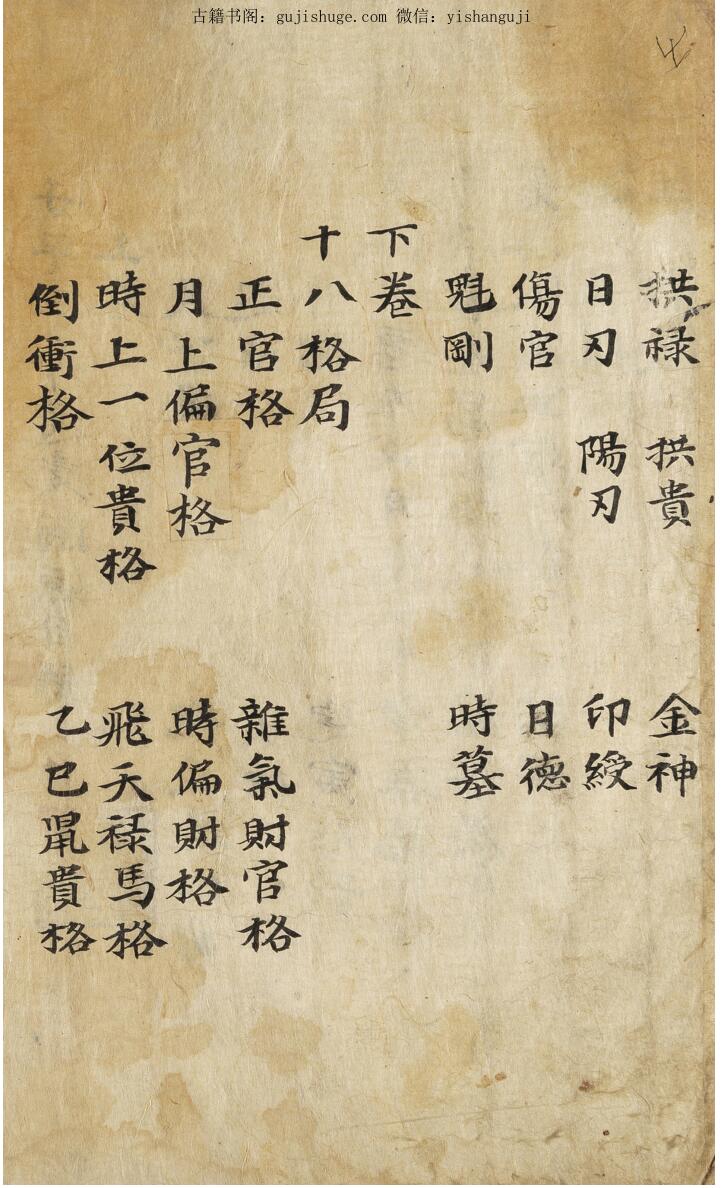 古籍书阁：gujishuge.com 微信：yishanguji
拱禄 拱貴 金神
日刃 陽刃 印綬
傷官 日德
魁剛 時墓
下卷
十八格局
正官格 雜氣財官格
月上偏官格 時偏財格
時上一位貴格 飛天禄馬格
倒衝格 乙巳鼠貴格